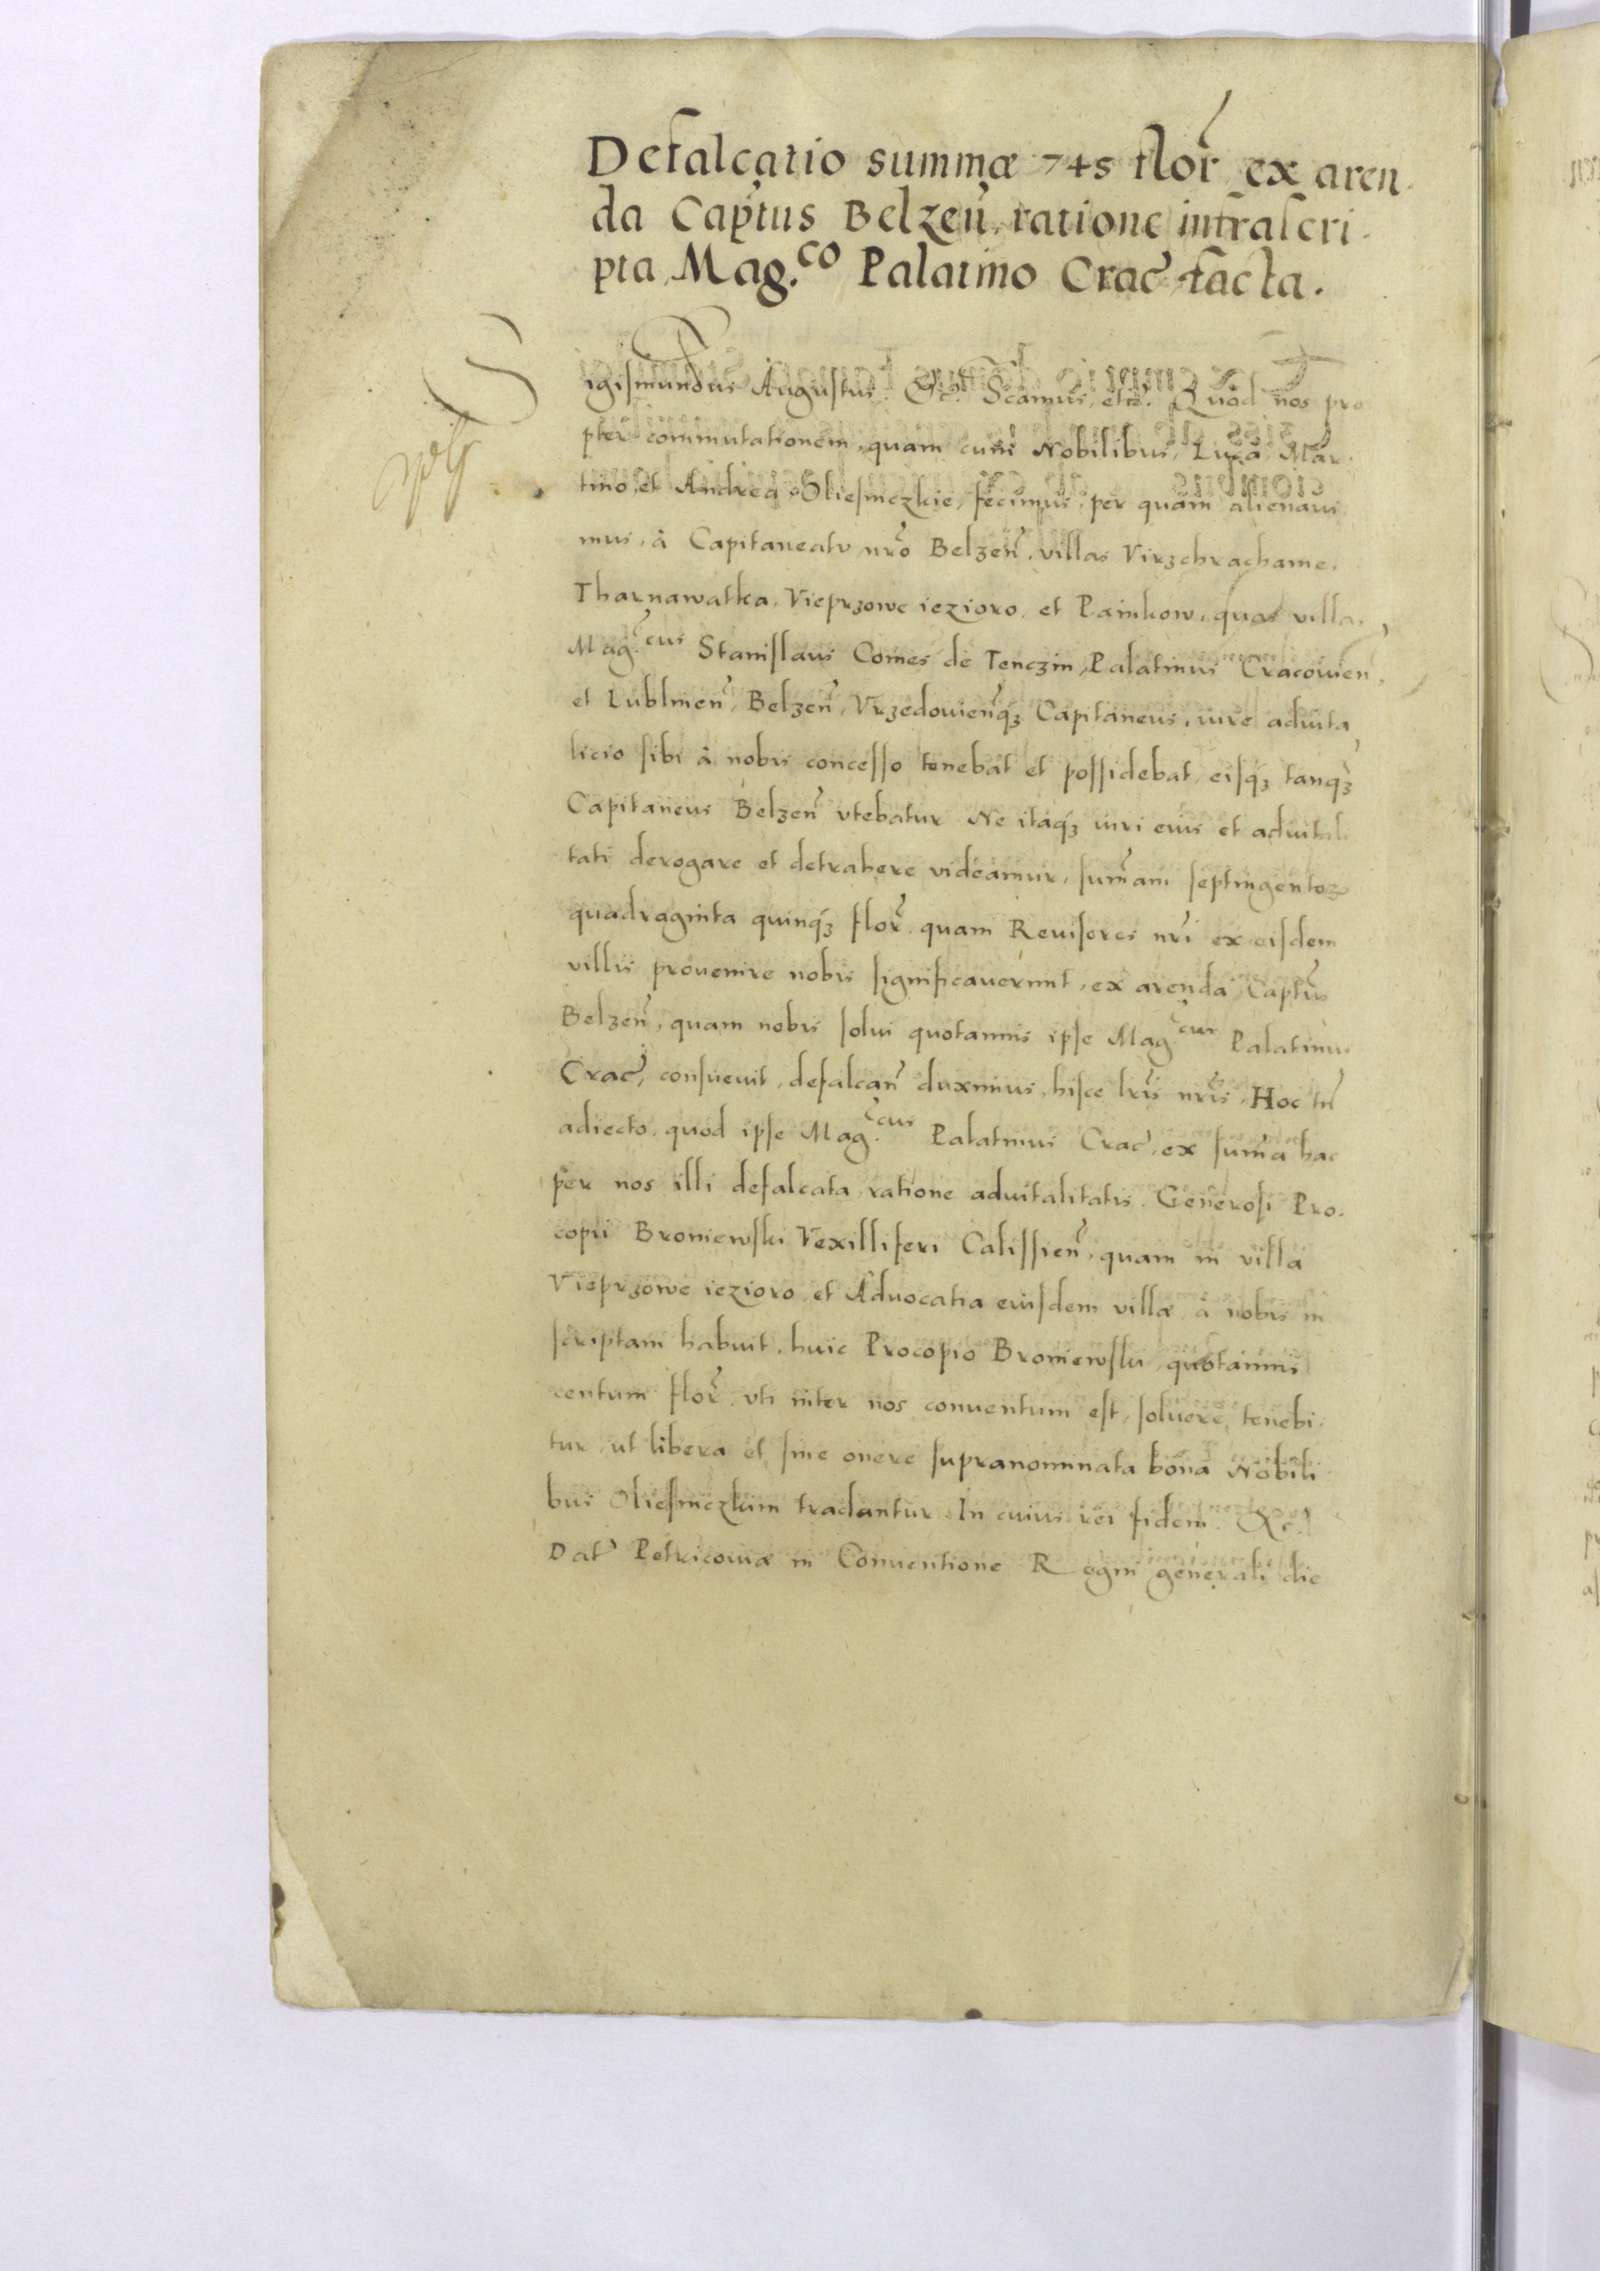 Defalcatio summæ 745 flor ex aren
da Captus Belzeñ, ratione infrascri
pta Mag.co Palatino Crac facta.
Sigismundus Augustus. Etc. Scamus, etc. Quod nos pro
pter commutationem, quam cum Nobilibus, Luca, Mar
tino, et Andrea Oliesniczkie, fecimus, per quam alienavi
mus, à Capitaneatu nro Belzeñ, villas Virzchrachame,
Tharnawatka, Vieprzowe iezioro, et Painkow, quas villas,
Mag.cus Stanislaus Comes de Tenczin, Palatinus Cracovien,
et Lublineñ, Belzeñ, Vrzedovienq́; Capitaneus, iure advita
licio sibi à nobis concesso tenebat et possidebat, eisq́; tanq́;
Capitaneus Belzeñ vtebatur. Ne itaq́; iuri eius et advitali
tati derogare et detrahere videamur, summam septingentor
quadraginta quinq́; flor, quam Revisores nri ex eisdem
villis provenire nobis significaverunt, ex arenda Captus
Belzeñ, quam nobis solvi quotannis ipse Mag.cus Palatinus
Crac, consuevit, defalcañ duximus, hisce lris nris, Hoc tñ
adiecto, quod ipse Mag.cus Palatinus Crac, ex summa hac
per nos illi defalcata, ratione advitalitatis, Generosi Pro.
copii Broniewski Vexilliferi Calissieñ, quam in villa
Vieprzowe iezioro, et Advocatia eiusdem villæ, à nobis in
scriptam habuit, huic Procopio Broniewski, quotannis
centum flor, vti inter nos conventum est, solvere, tenebi.
tur, ut libera et sine onere supranominata bona Nobili
bus Oliesniczkim tradantur. In cuius rei fidem. Etc.
Dat Petricoviæ in Conventione Regni generali die